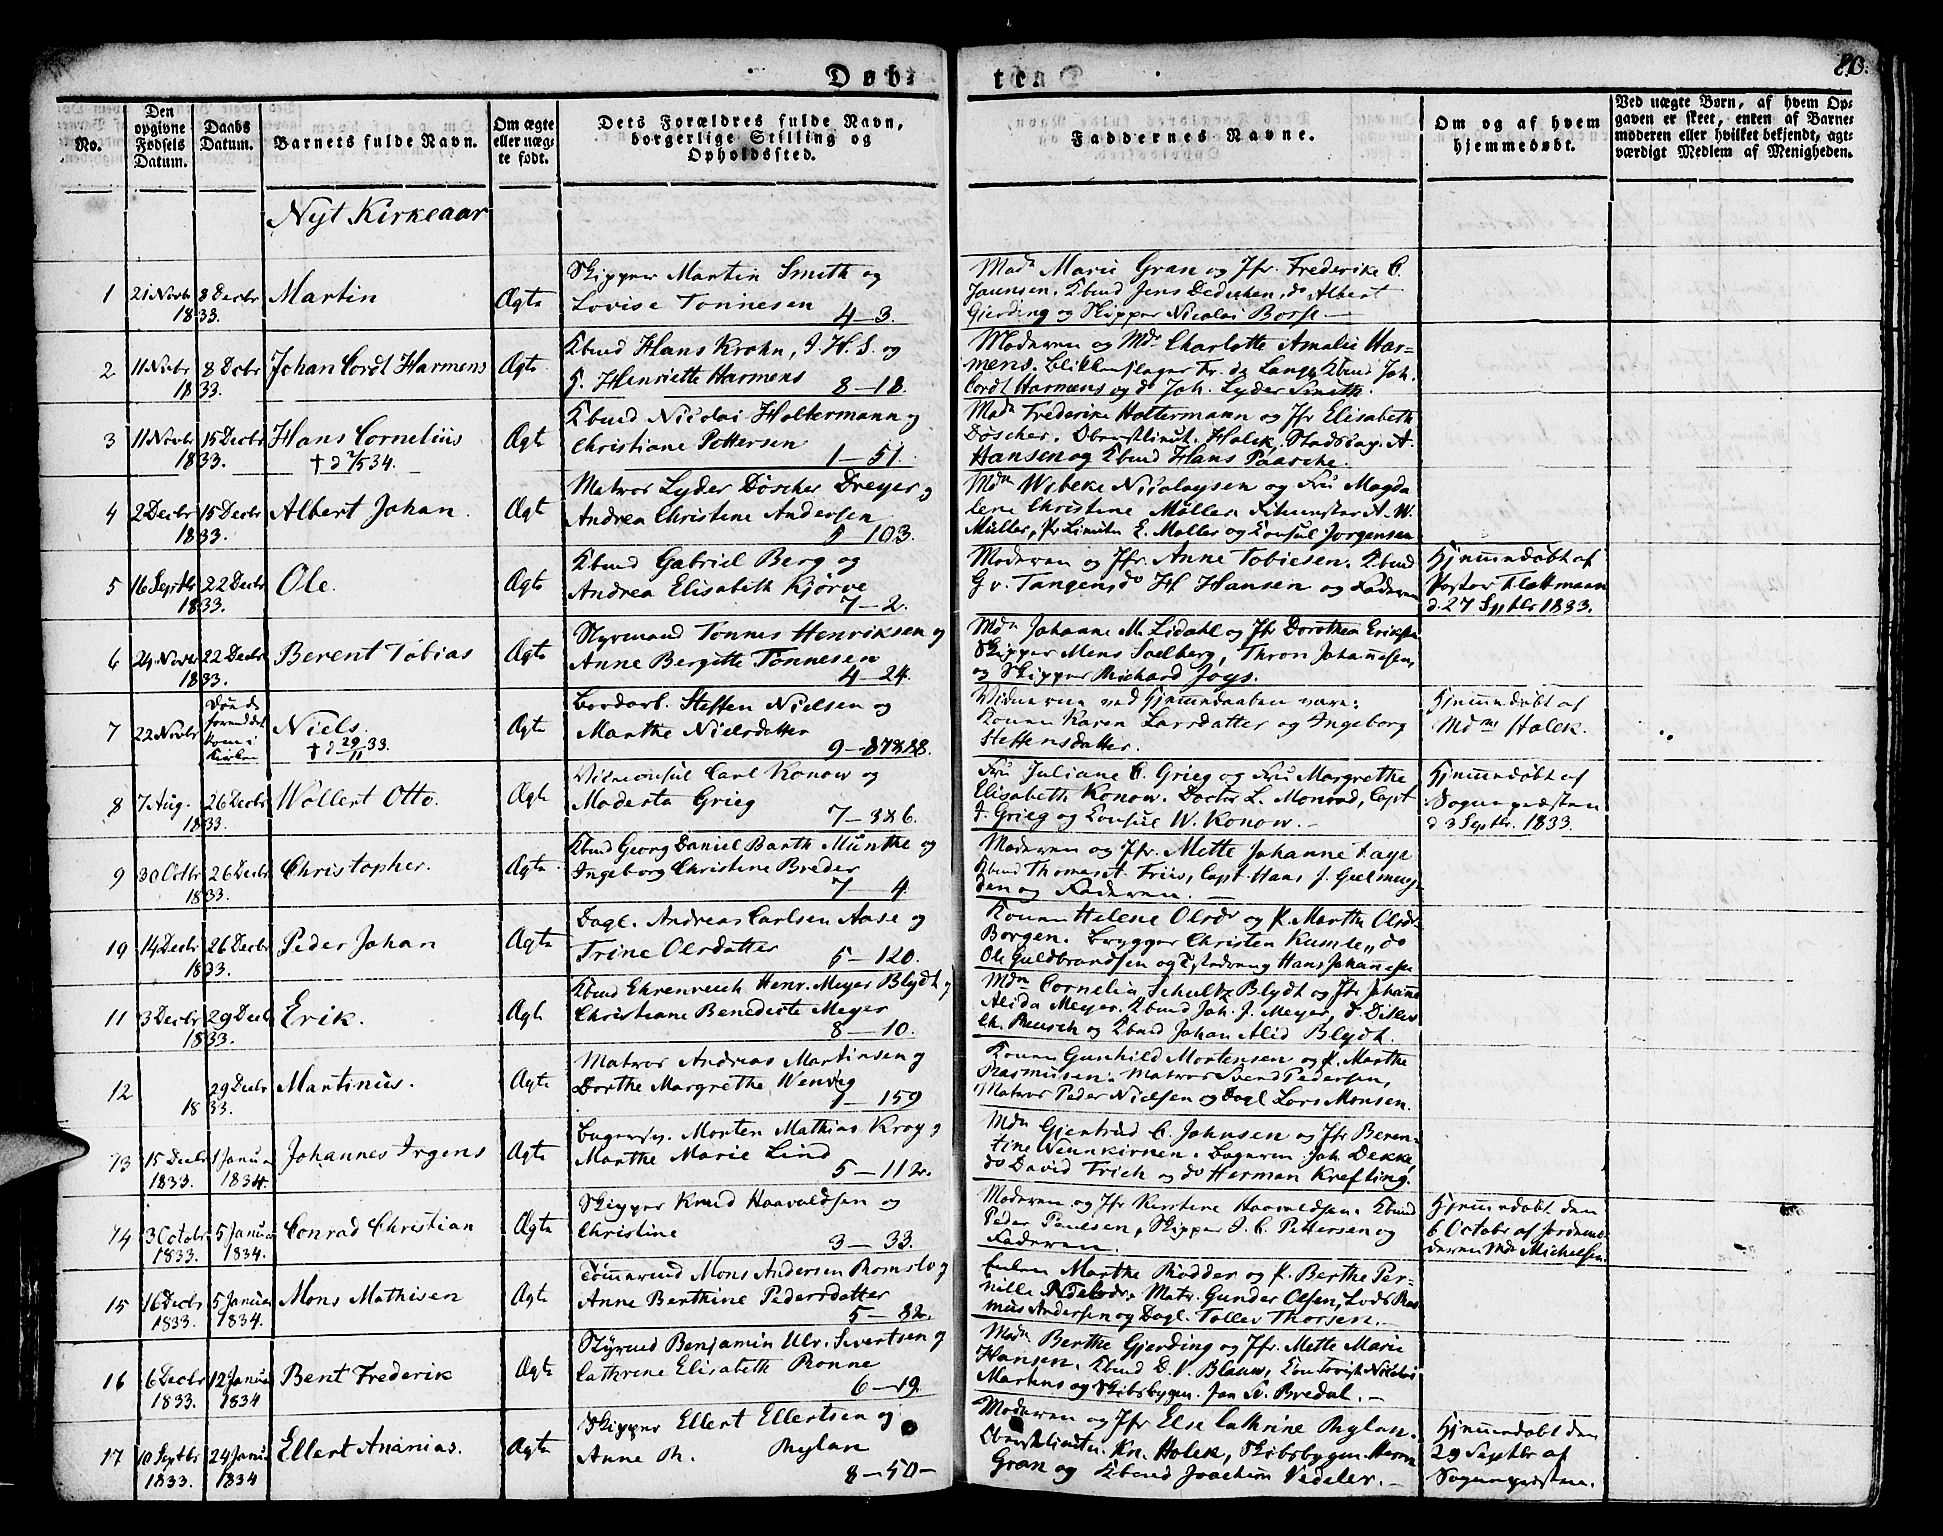 Døb-
ten
80.
No.
Den
opgivne
Fødsels
Datum.
Daabs
Datum.
Barnets fulde Navn.
Om ægte
eller uæg-
te født.
Dets Forældres fulde Navn,
borgerlige Stilling og
Opholdssted.
Faddernes Navne.
Om og af hvem
hjemmedøbt.
Ved uægte Børn, af hvem Op-
gaven er skeet, enten af Barne-
moderen eller hvilket bekjendt, agt-
værdigt Medlem af Menigheden.
Nyt Kirkeaar
1 21 Novbr 8 Decbr Martin Ægte
1833.
Skipper Martin Smith og
Lovise Tonnesen 4-3.
Madn Marie Gran og Jfr. Frederike C.
Jaunsen. Kbmd Jens Dedichen, do Albert
Gjerding og Skipper Nicolai Borse
2 11 Novbr 8 Decbr Johan Cordt Harmens Ægte
1833.
Kbmd Hans Krohn, J. H. S. og
F. Henriette Harmens 8-18.
Moderen og Md. Charlotte Amalie Har-
mens. Blikkenslager Fr. da Lange, Kbmd Joh.
Cordt Harmens og do Joh. Lyder Smith.
3 11 Novbr 15 Decbr Hans Cornelius Ægte
1833. † d 2/5 34.
Kbmd Nicolai Holtermann og
Christiane Pettersen 1-51.
Madn Frederike Holtermann og Jfr Elisabeth
Döscher. Oberstlieut. Holck, Stadsdag. A.
Hansen og Kbmd Hans Paasche.
4 2 Decbr 15 Decbr Albert Johan. Ægte
1833.
Matros Lyder Döscher Dreyer og
Andrea Christine Andersen
5-103.
Mdn Wibeke Nicolaysen og Fru Magda
lene Christine Müller. A. W.
Müller, Pr. Lieuten E. Møller og Consul Jorgensen
5 16 Septbr 22 Decbr Ole. Ægte
1833.
Kbmd Gabriel Berg og
Andrea Elisabeth Kjörve
7-2.
Moderen og Jfr. Anne Tobiesen. Kbmd
G v. Tangen, do H. Hansen og Faderen
Hjemmedöbt af
Pastor Flottmann
d. 27 Septbr 1833.
6 24 Novbr 22 Decbr Berent Tobias Ægte
1833.
Styrmand Tonnes Henriksen og
Anne Bergitte Tonnesen
4-24.
Mdn Johanne M. Lidahl og Jfr Dorothea Eriksen
Skipper Mons Soelberg, Thron Johannesen,
og Skipper Richard Joys.
7 22 Novbr Niels. Ægte
Döde
forend det
kom i
Kirken
† d 29/11 33.
Bordarb. Steffen Nielsen og
Marthe Nielsdatter
9-
Vidnerne ved hjemmedaaben vare:
Konen Karen Larsdatter og Ingeborg
Steffensdatter.
Hjemmedöbt af
Mdme Holck.
8 7 Aug. 26 Decbr Wollert Otto. Ægte
1833.
Viceconsul Carl Konow og
Modesta Grieg 7-3&6.
Fru Juliane C. Grieg og Fru Margrethe
Elisabeth Konow. Doctor L. Monrad, Capt
J. Grieg og Consul W. Konow.
Hjemmedöbt af
Sognepræsten
d 3 Septbr. 1833.
9 30 Octbr 26 Decbr Christopher. Ægte
1833.
Kbmd Georg Daniel Barth Munthe og
Ingeborg Christine Breder
7-4.
Moderen og Jfr. Mette Johanne Faye
Kbmd Thomas st Friis, Capt. Hans J. Geelmuy-
den og Faderen.
10 14 Decbr 26 Decbr Peder Johan Ægte
1833.
Dagl. Andreas Carlsen Aase og
Trine Olsdatter 5-120.
Konen Helene Olsdr og P. Marthe Olsdr
Borgen. Brygger Christen Kumle, do
Ole Guldbrandsen og Hans Johannesen
11 3 Decbr 29 Decbr Erik. Ægte
1833.
Kbmd Ehrenreich Henr. Meyer Blydt og
Christiane Benedicte Meyer
8-10.
Mdn Cornelia Schultz Blydt og Jfr Johanne
Alida Meyer. Kbmd Joh. J. Meyer, d. Ditlev
Ch. Reusch og Kbmd Johan Alid Blydt.
12 29 Decbr Martinus. Ægte
1833.
Matros Andreas Martinsen og
Dorthe Margrethe Wenvig
7-159
Konen Gunhild Mortensen og P. Marthe
Rasmusen. Matros Svend Pedersen,
Matros Peder Nielsen og Dagl Lars Monsen.
13 15 Decbr 1 Januar Johannes Irgens Ægte
1833. 1834.
Bagersv. Morten Mathias Kroy og
Marthe Marie Lind
5-112.
Mdn Gjertrud C. Johnsen og Jfr Beren-
tine Neunkirnen. Bageren Joh. Dekke,
do David Frich og do Herman Krefting.
14 3 Octobr 5 Januar Conrad Christian Ægte
1833. 1834.
Skipper Knud Haavoldsen og
Christine 3-33.
Moderen og Jfr Kirstine Haavoldsen. Kbmd
Peder Paulsen, Skipper J. C. Pettersen og
Faderen.
Hjemmedöbt den
6 Octobr af Jordemo-
deren Mdm Michelsen
15 16 Decbr 5 Januar Mons Mathisen Ægte
1833. 1834.
Tömmermd Mons Andersen Romslo og
Anne Berthine Pedersdatter
5-82.
Enken Marthe Rödder og P. Berthe Per-
nille Nielsdr. Matr. Gunder Olsen, Lods Ras
mus Andersen og Dagl. Tollev Thorsen.
16 6 Decbr 12 Januar Bent Frederik Ægte
1833. 1834
Styrmd Benjamin Ulr. Sivertsen og
Cathrine Elisabeth Ronne
6-19.
Madn Berthe Gjerding og Jfr. Mette Marie
Hansen. Kbmd D. V. Blauw, Contorist Nicolai
Martens og Skibsbygm. Jan Sv. Bredal.
17 10 Septbr 24 Januar Ellert Ananias. Ægte
1833. 1834
Skipper Ellert Ellertsen og
Anne M. Rylan
8-50-
Moderen og Jfr Else Cathrine Rylan.
Oberstlieuten. Kn. Holck, Skibsbygm. Herm
Gran og Kbmd Joachim Vedeler.
Hjemmedöbt den
29 Septbr af
Sognepræsten.